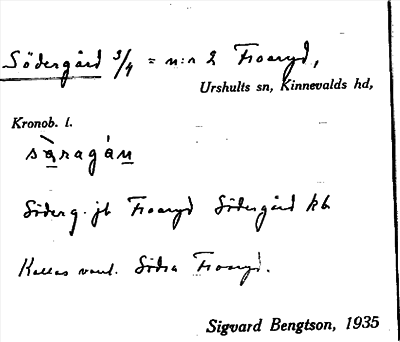 Södergård 3/4 = n:r 2 Froaryd,
Urshults sn, Kinnevalds hd,
Kronob. l.
sàragán
Söderg. jb Froaryd Södergård kb
Kallas vanl. Södra Froaryd.
Sigvard Bengtson, 1935